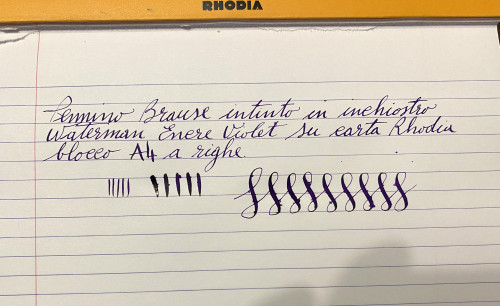 RHODIA
Pennino Brause intinto in inchiostro
Waterman Encre Violet su carta Rhodia
blocco A4 a righe